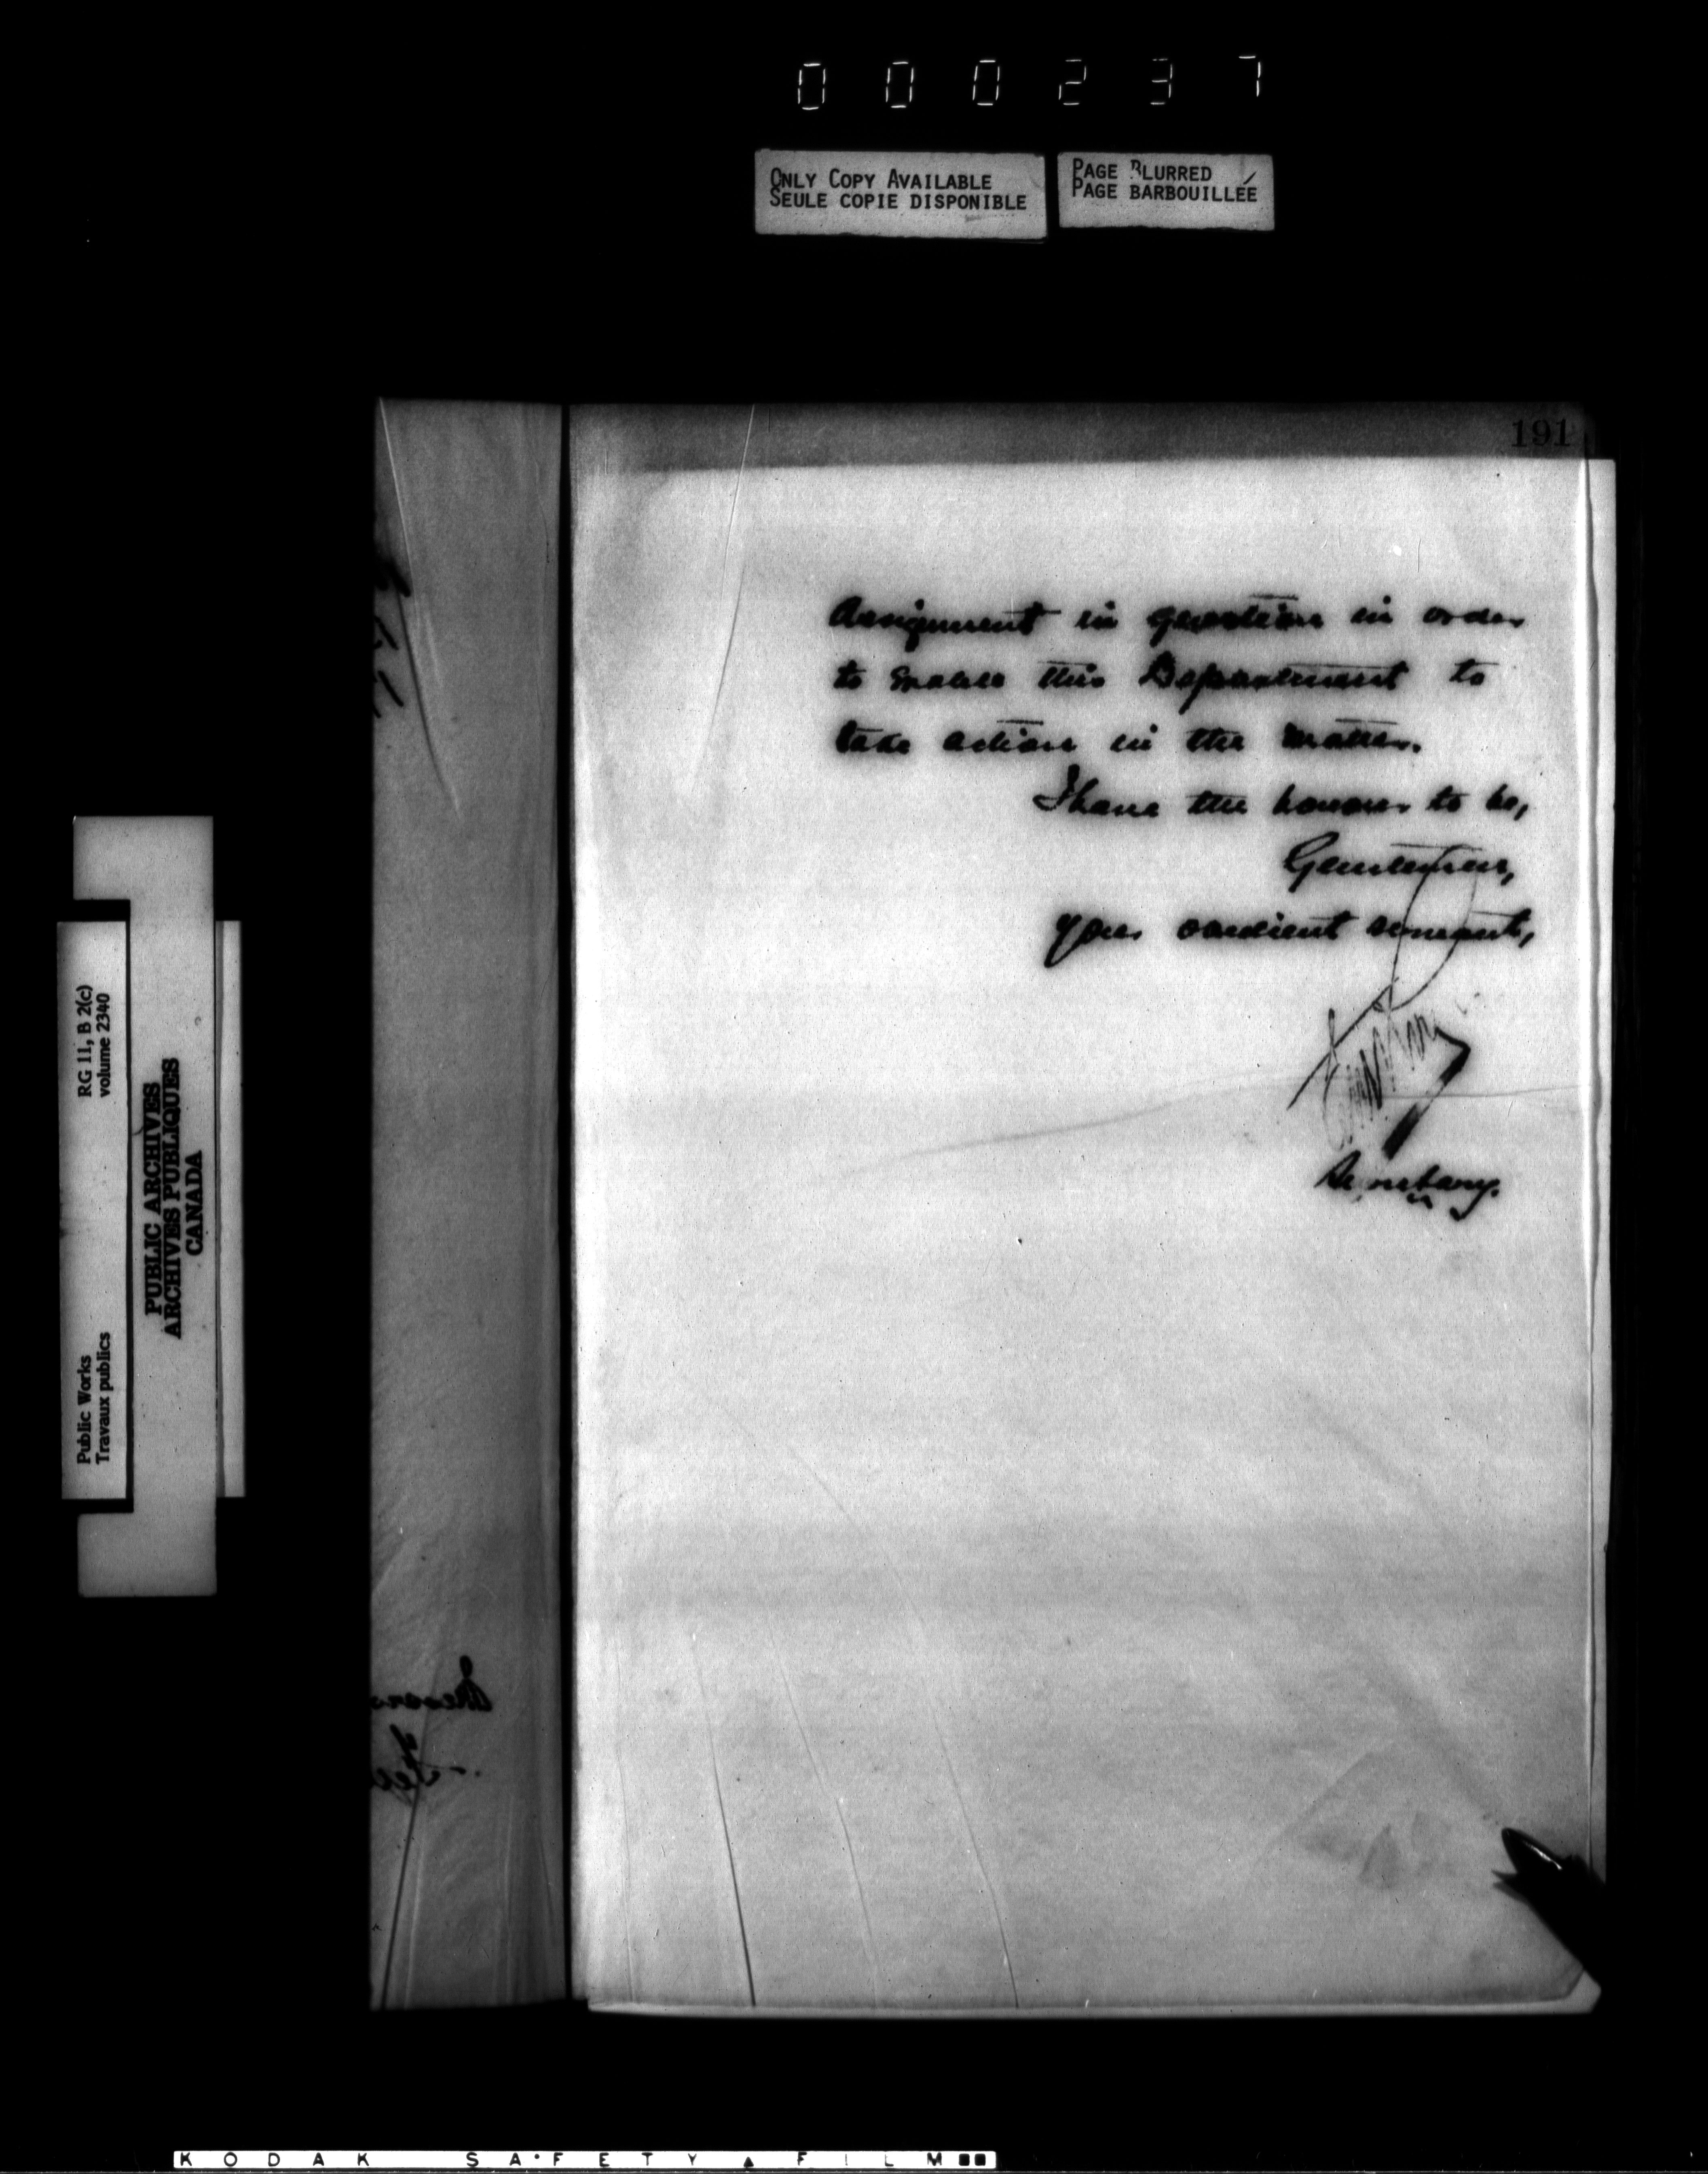 000237
ONLY COPY AVAILABLE
SEULE COPIE DISPONIBLE
PAGE BLURRED
PAGE BARBOUILLÉE
191
Assignment in question in order
to enable this Department to
take action in the matter.
I have the honour to be,
Gentlemen,
your obedient servant,
Secretary.
RG 11, B 2(c)
volume 2340
Public Works
Travaux publics
PUBLIC ARCHIVES
ARCHIVES PUBLIQUES
CANADA
KODAK SAFETY FILM